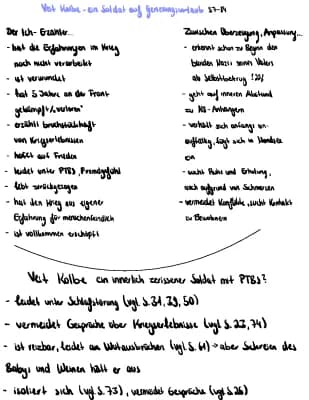 Veit Kolbe - ein Soldat auf Genesungsurlaub S7-14
Der Ich-Erzähler...
- hat die Erfahrungen im Krieg
noch nicht verarbeitet
- ist verwundet
- hat 5 Jahre an der Front
gekämpft/„verloren"
- erzählt bruchstückhaft
von Kriegserlebnissen
- hofft auf Frieden
- leidet unter PTBS, Fremdgefühl
- lebt zurückgezogen
- hat den Krieg aus eigener
Erfahrung für menschenfeindlich
- ist vollkommen erschöpft
Zwischen Überzeugung, Anpassung...
- erkennt schon zu Beginn den
beiden Nazi seines Vaters
als Selbstbetrug
- geht auf inneren Abstand
zu NS-Anhängern
- verhält sich anfangs un-
auffällig, fügt sich in
ein
- sucht Ruhe und Erholung,
auch aufgrund von Schmerzen
- vermeidet Konflikte, sucht Kontakt
zu Bewohnern
Veit Kolbe ein innerlich zerrissener Soldat mit PTBS?
- leidet unter Schlafstörung (vgl. S. 31, 39, 50)
- vermeidet Gespräche über Kriegserlebnisse (vgl. S. 23, 74)
- ist reizbar, leidet an Wutausbrüchen (vgl. S. 61) → aber Schreien des
Babys und Weinen hält er aus
- isoliert sich (vgl. S. 73), vermeidet Gespräche (vgl. S. 26)